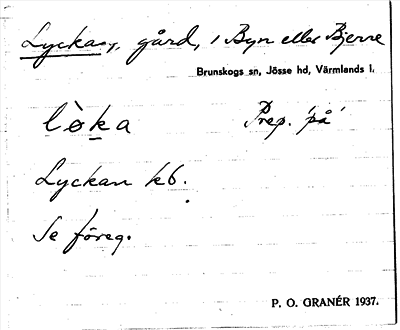 Lyckan, gård, i Byn eller Bjerre
Brunskogs sn, Jösse hd, Värmlands l.
lòka Prep. 'på'
Lyckan kb.
Se föreg.
P. O. GRANÉR 1937.